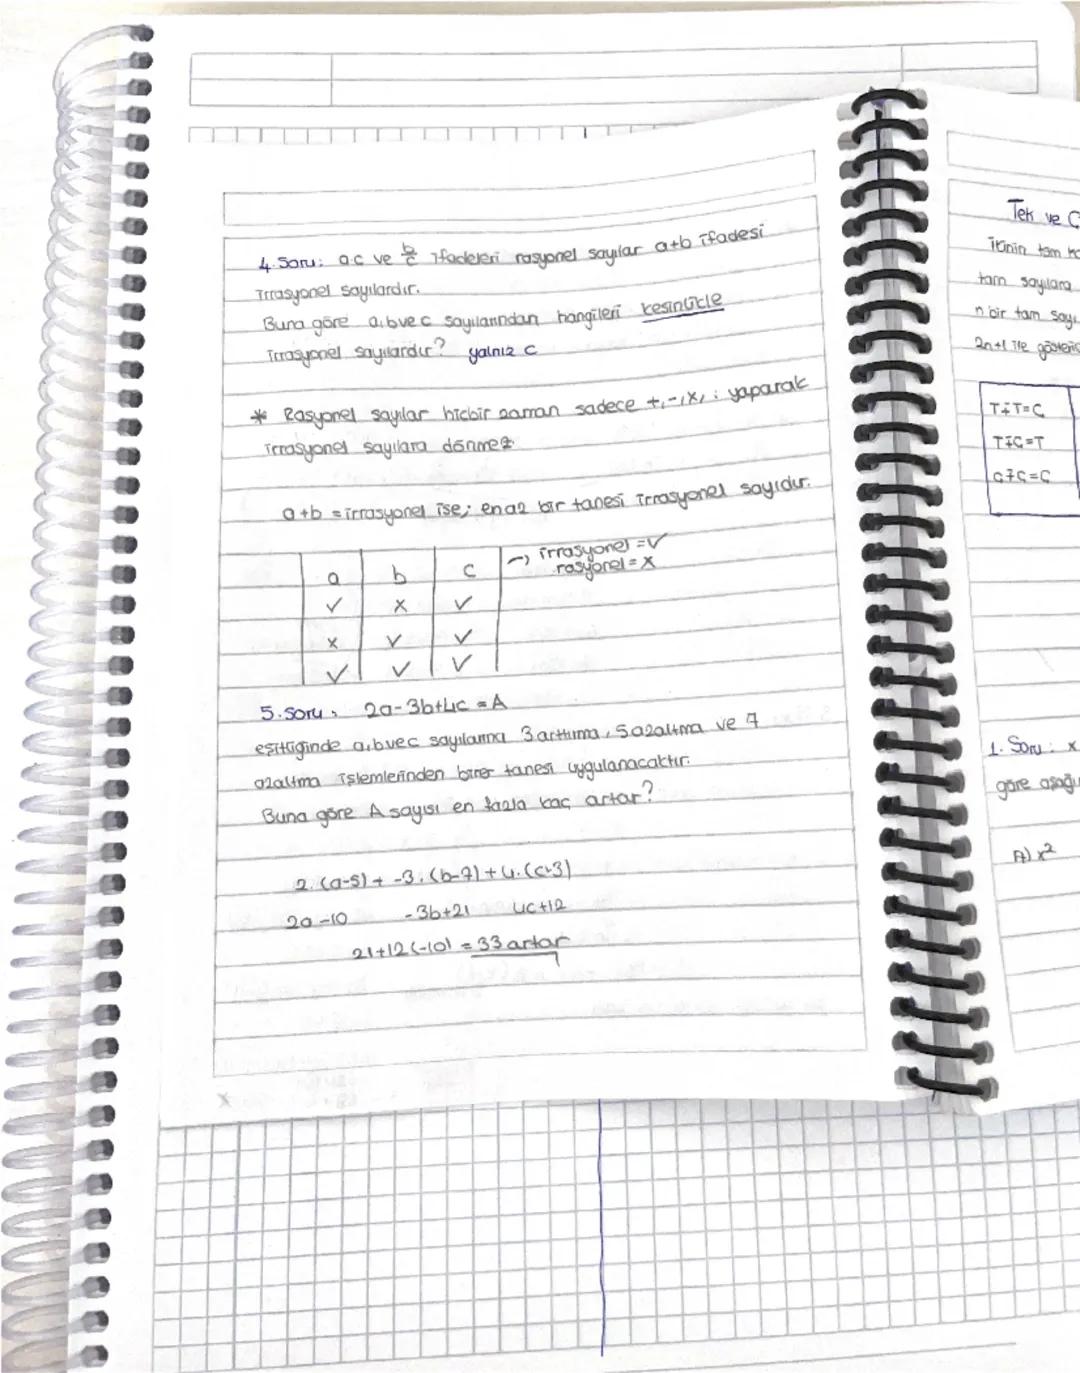 4. Soru: a.c ve b/c ifadeleri rasyonel sayılar a+b ifadesi
irrasyonel sayılardır.
Buna göre a,b ve c sayılarından hangileri kesinlikle
irrasyonel sayılardır? yalnız c
* Rasyonel sayılar hiçbir zaman sadece +,-,x,: yaparak
irrasyonel sayılara dönmez
a+b = irrasyonel ise; en az bir tanesi irrasyonel sayıdır.
a b c → irrasyonel = ✓
rasyonel = x
✓ x ✓
x ✓ ✓
✓ ✓ ✓
5. soru, 2a-3b+4c = A
eşitliğinde a,b ve c sayılarına 3 arttırma, 5 azaltma ve 7
azaltma işlemlerinden birer tanesi uygulanacaktır.
Buna göre A sayısı en fazla kaç artar?
2.(a-5)+ -3.(b-7)+4.(c+3)
2a-10 -3b+21 4c+12
21+12(-10) = 33 artar
Tek ve Ç
ikinin tam
tam sayılara
n bir tam sayı
2n+1 ile
T∓T=Ç
T∓Ç=T
Ç∓Ç=Ç
1. Soru: x
göre aşağı
A) x²